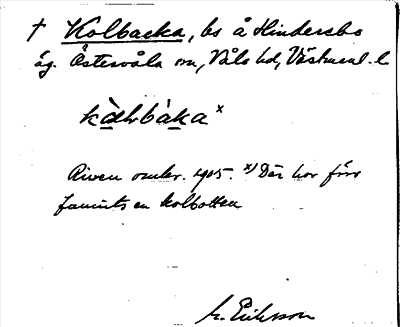 † Kolbacka, bs å Hindersbo
äg. Östervåla sn, Våla hd, Västmanl. l
kàlbàka x
Riven omkr. 1905. x) Där har förr
funnits en kolbotten
Eriksson